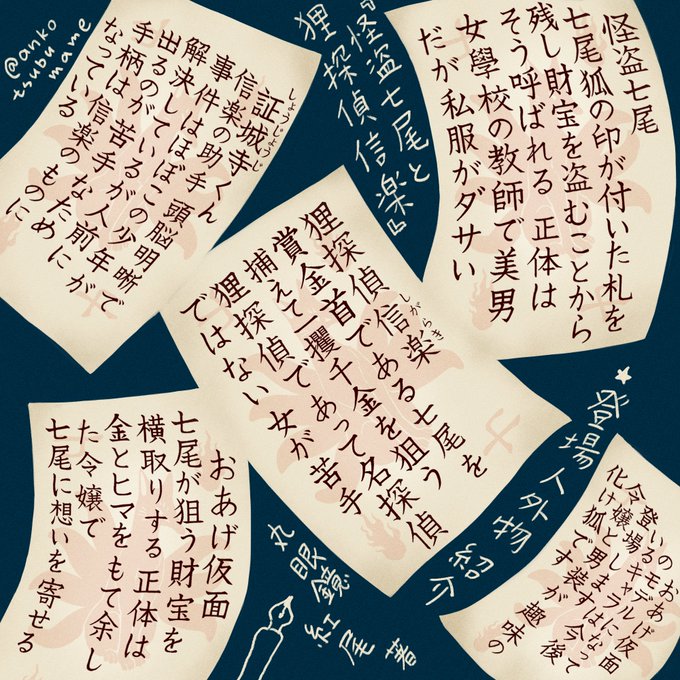 @anko
tsubu
mame
『怪盗七尾と
狸探偵信楽』
怪盗七尾
七尾狐の印が付いた札を
残し財宝を盗むことから
そう呼ばれる 正体は
女學校の教師で美男
だが私服がダサい
しょうじょうじ
証城寺くん
信楽の助手 頭脳明晰で
事件はほぼこの少年が
解決しているが人前に
出るのが苦手なために
手柄は信楽のものに
なっている
しがらき
狸探偵信楽
賞金首である七尾を
捕えて一攫千金を狙う
狸探偵であって名探偵
ではない 女が苦手
★登場人外物紹介
おあげ仮面
七尾が狙う財宝を
横取りする 正体は
金とヒマをもて余し
た令嬢で
七尾に想いを寄せる
おあげ仮面
のモデルになって
いるキャラは今後
登場します
令嬢 男装が趣味の
化け狐です
丸眼鏡
紅尾 著